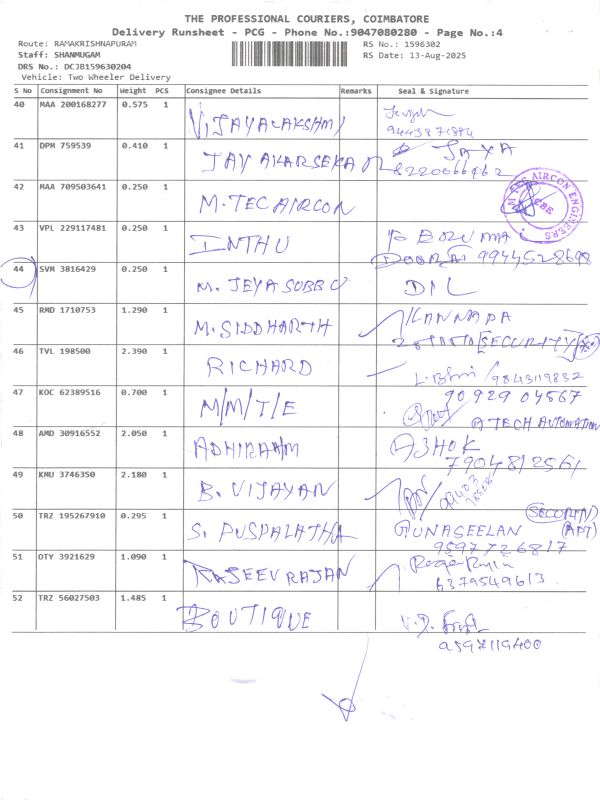 THE PROFESSIONAL COURIERS, COIMBATORE
Delivery Runsheet - PCG - Phone No.:9047080280 - Page No.:4
Route: RAMAKRISHNAPURAM
RS No.: 1596302
Staff: SHANMUGAM
RS Date: 13-Aug-2025
DRS No.: DCJB159630204
Vehicle: Two Wheeler Delivery
S No Consignment No Weight PCS Consignee Details Remarks Seal & Signature
40 MAA 200168277 0.575 1 VIJAYALAKSHMI
41 DPM 759539 0.410 1 JAYAKARSEKAR JAYA
8220666462
42 MAA 709503641 0.250 1 M.TEC AIRCON M TEC AIRCON ENGINEERS CBE
43 VPL 229117481 0.250 1 INTHU
9944528698
44 SVM 3816429 0.250 1 M. JEYA SUBBU DIL
45 RMD 1710753 1.290 1 M.SIDDHARTH KANNADA
[SECURITY]
46 TVL 198500 2.390 1 RICHARD 9843119832
47 KOC 62389516 0.700 1 M/M/T/E 90929 04567
A TECH AUTOMATION
48 AMD 30916552 2.050 1 ADHIRAAM ASHOK
7904812561
49 KMU 3746350 2.180 1 B. VIJAYAN
50 TRZ 195267910 0.295 1 S. PUSPALATHA GUNASEELAN (SECURITY) (APT)
9597726817
51 OTY 3921629 1.090 1 RASEEV RAJAN
6379549613
52 TRZ 56027503 1.485 1 BOUTIQUE
9597119400